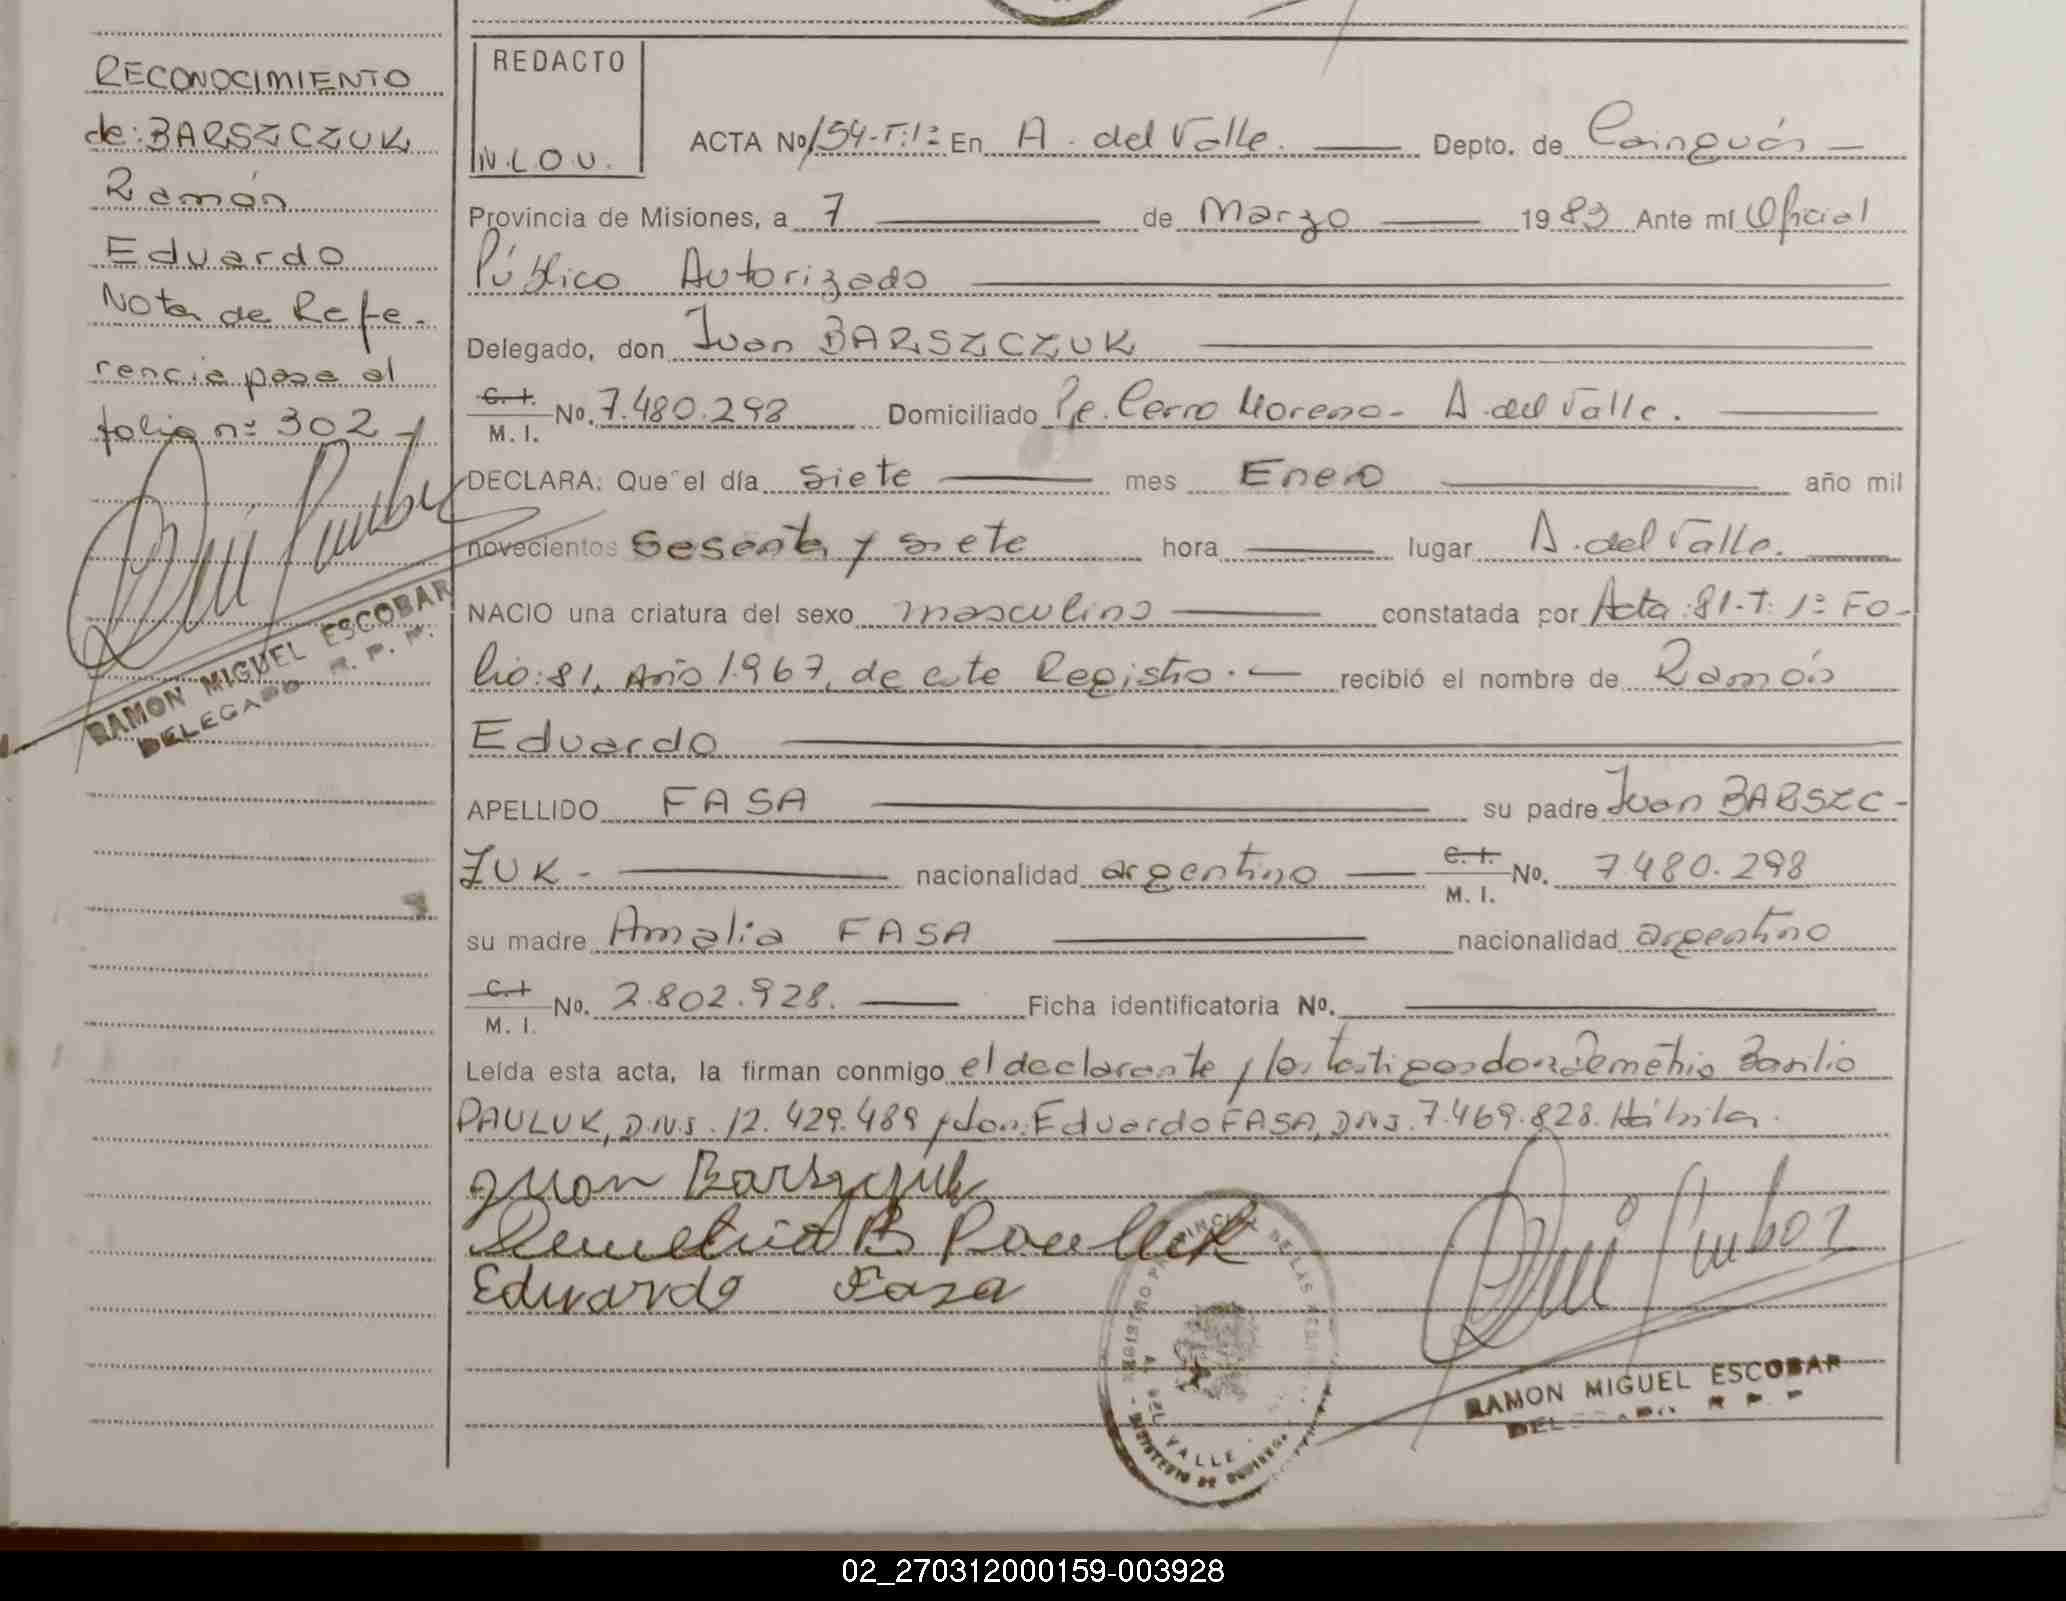 RECONOCIMIENTO
de: BARSZCZUK
Ramón
Eduardo
Nota de Refe-
rencia pasa al
folio nº 302
RAMON MIGUEL ESCOBAR
DELEGADO R. P. M.
REDACTO
N.L.O.U.
ACTA No 154-T:1º En A. del Valle. Depto. de Cainguás
Provincia de Misiones, a 7 de Marzo 1983 Ante mí Oficial
Público Autorizado
Delegado, don Juan BARSZCZUK
C. I. M. I. No. 7.480.298 Domiciliado Pje. Cerro Moreno - A. del Valle.
DECLARA: Que el día siete mes Enero año mil
novecientos sesenta y siete hora lugar A. del Valle.
NACIO una criatura del sexo masculino constatada por Acta: 81-T: 1º Fo-
lio: 81, Año 1.967, de este Registro.- recibió el nombre de Ramón
Eduardo
APELLIDO FASA su padre Juan BARSZC-
ZUK - nacionalidad argentino C. I. M. I. No. 7.480.298
su madre Amalia FASA nacionalidad argentino
C. I. M. I. No. 2.802.928. Ficha identificatoria No.
Leída esta acta, la firman conmigo el declarante y los testigos don Demetrio Basilio
PAULUK, D.N.I. 12.429.489 y don Eduardo FASA, D.N.I. 7.469.828. Hábiles.
Juan Barszczuk
Demetrio B Pauluk
Eduardo Fasa
REGISTRO PROVINCIAL DE LAS
A. DEL VALLE
MINISTERIO DE GOBIERNO
RAMON MIGUEL ESCOBAR
02_270312000159-003928